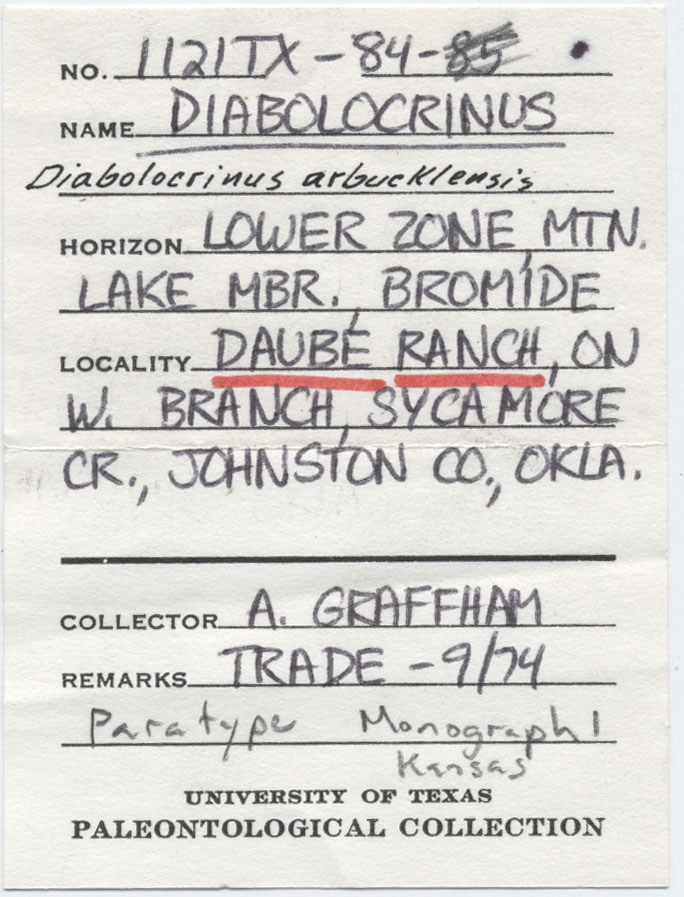 NO. 1121TX-84-85
NAME DIABOLOCRINUS
Diabolocrinus arbucklensis
HORIZON LOWER ZONE, MTN.
LAKE MBR., BROMIDE
LOCALITY DAUBE RANCH, ON
W. BRANCH, SYCAMORE
CR., JOHNSTON CO., OKLA.
COLLECTOR A. GRAFFHAM
REMARKS TRADE - 9/74
Paratype Monograph 1
Kansas
UNIVERSITY OF TEXAS
PALEONTOLOGICAL COLLECTION